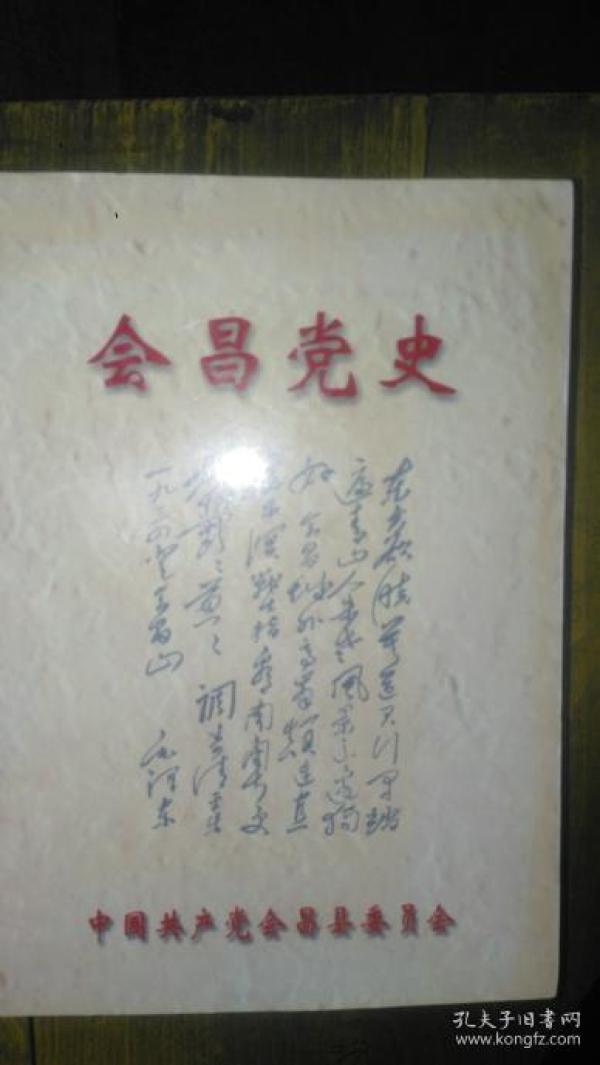 会昌党史
东方欲晓莫道君行早踏
遍青山人未老风景这边独
好会昌城外高峰颠连直
接东溟战士指看南粤更
郁々葱々调寄清平乐
一九三四登会昌山 毛泽东
中国共产党会昌县委员会
孔夫子旧书网
www.kongfz.com